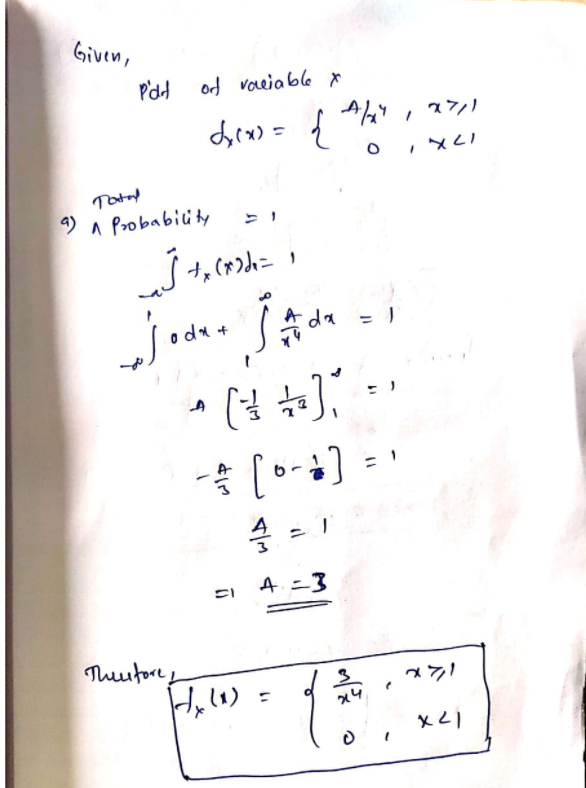 Given,
Pdf of variable x
fx(x) = { A/x⁴ , x≥1
0 , x<1
a) Total Probability = 1
∫_{-∞}^{∞} fx(x)dx = 1
∫_{-∞}^{1} 0 dx + ∫_{1}^{∞} A/x⁴ dx = 1
A [-1/3 1/x³]_{1}^{∞} = 1
-A/3 [0 - 1/1] = 1
A/3 = 1
=1 A = 3
Therefore,
fx(x) = { 3/x⁴ , x≥1
0 , x<1